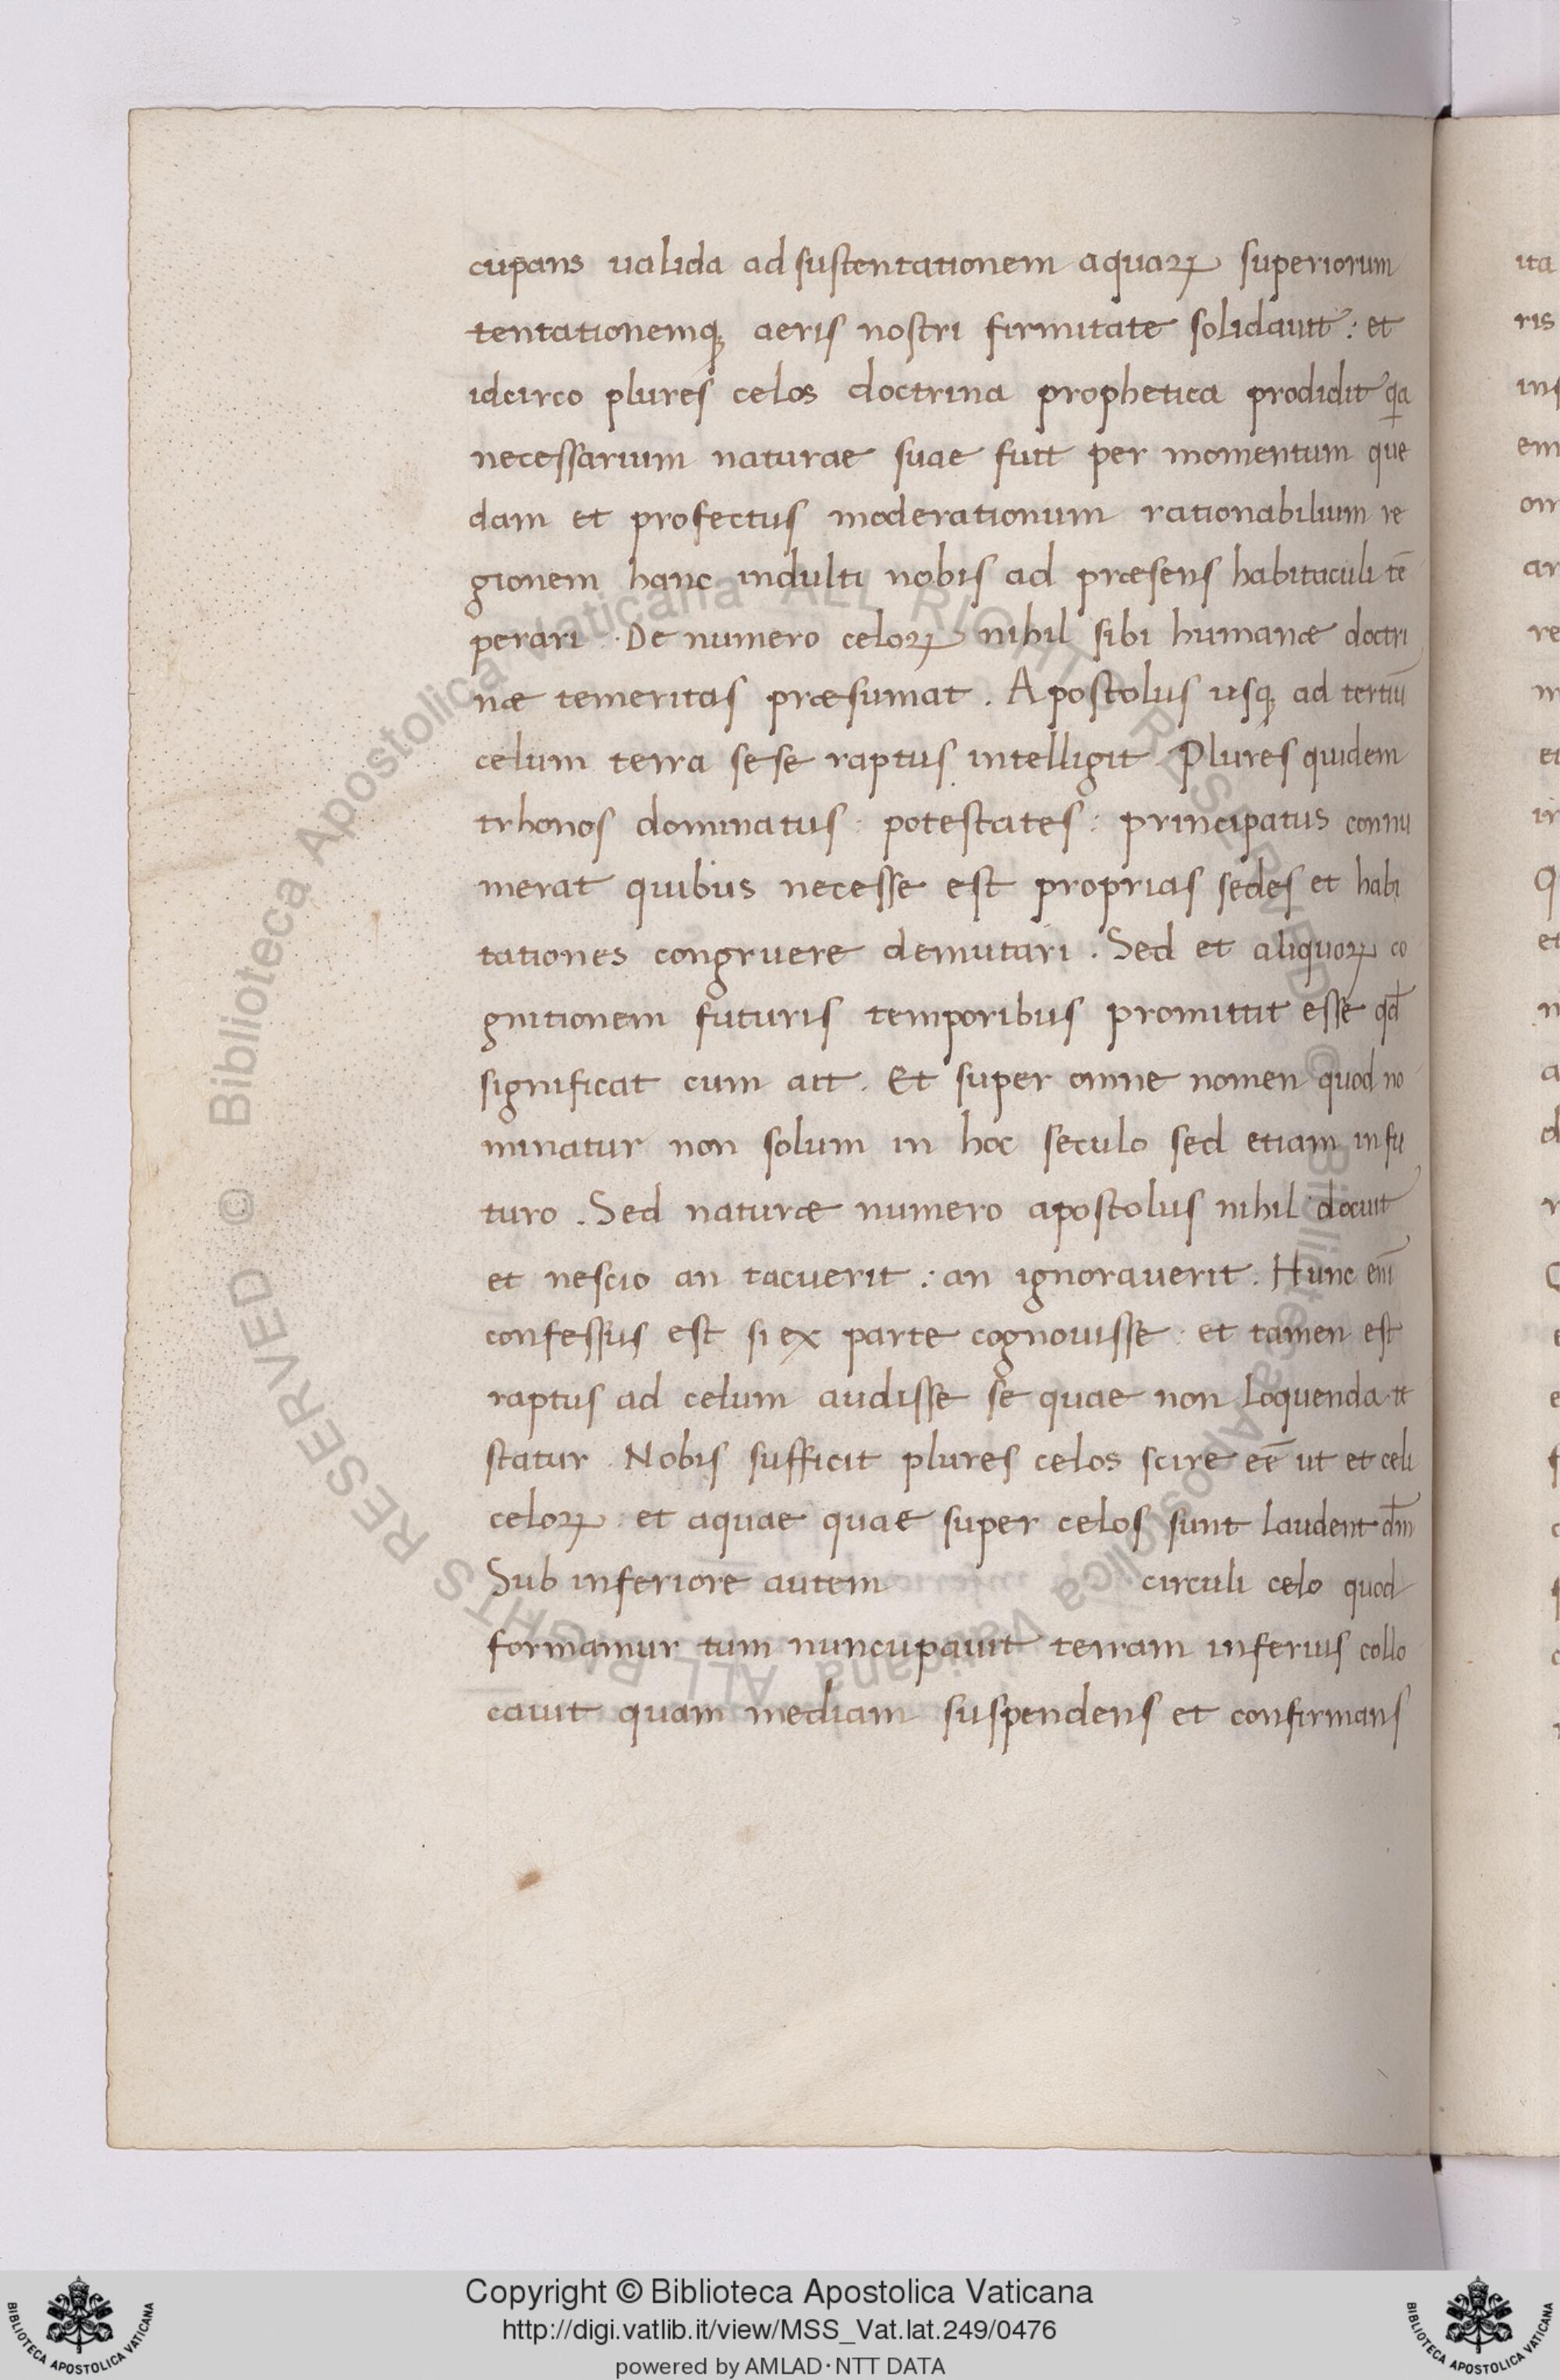 cupans ualida ad sustentationem aquaꝝ superiorum
tentationemqꝫ aeris nostri firmitate solidauit : et
idcirco plures celos doctrina prophetica prodidit qa
necessarium naturae suae fuit per momentum que
dam et profectus moderationum rationabilium re
gionem hanc indulti nobis ad præsens habitaculi tē
perari . De numero celoꝝ nihil sibi humanæ doctri
næ temeritas præsumat . Apostolus usqꝫ ad tertiū
celum terra sese raptus intelligit . Plures quidem
trhonos dominatus : potestates : principatus connu
merat quibus necesse est proprias sedes et habi
tationes congruere demutari . Sed et aliquoꝝ co
gnitionem futuris temporibus promittit esse qd̄
significat cum ait . Et super omne nomen quod no
minatur non solum in hoc seculo sed etiam in fu
turo . Sed naturæ numero apostolus nihil docuit
et nescio an tacuerit : an ignorauerit . Hunc eni̅
confessus est si ex parte cognouisse : et tamen est
raptus ad celum audisse se quae non loquenda tt
statur . Nobis sufficit plures celos scire eē ut et celi
celoꝝ : et aquae quae super celos sunt laudent dm̄
Sub inferiore autem circuli celo quod
formamur tum nuncupauit terram inferius collo
cauit quam mediam suspendens et confirmans
ita
ris
ins
em
om
ar
re
et
© Biblioteca Apostolica Vaticana ALL RIGHTS RESERVED © Biblioteca Apostolica Vaticana ALL RIGHTS RESERVED
Copyright © Biblioteca Apostolica Vaticana
http://digi.vatlib.it/view/MSS_Vat.lat.249/0476
powered by AMLAD·NTT DATA
BIBLIOTECA APOSTOLICA VATICANA
BIBLIOTECA APOSTOLICA VATICANA